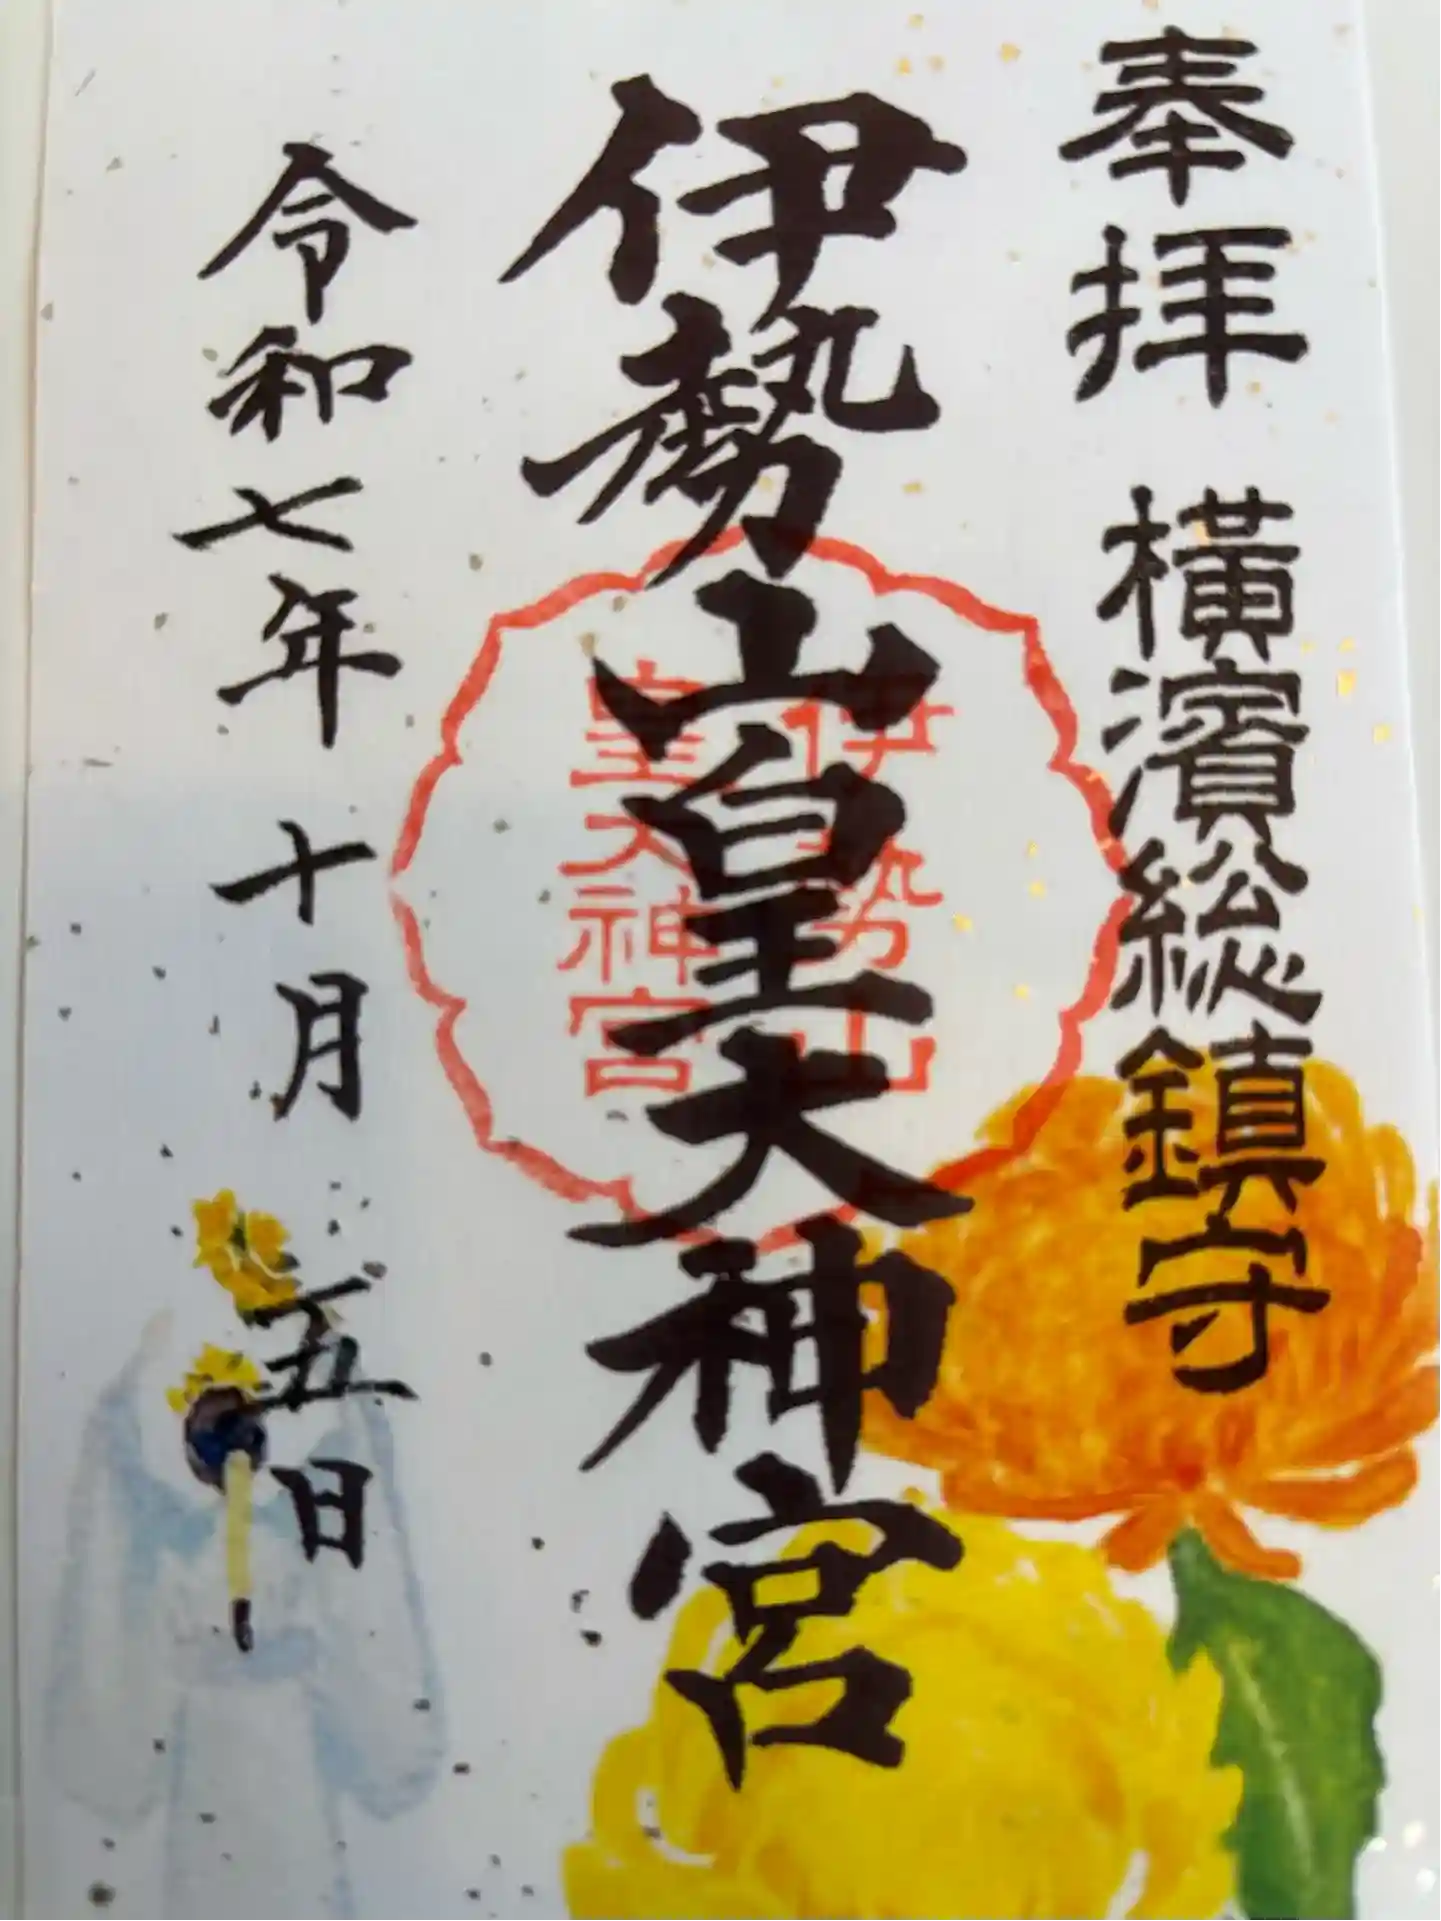 奉拝 横濱総鎮守
伊勢山皇大神宮
伊勢山
皇大神宮
令和七年 十月 五日